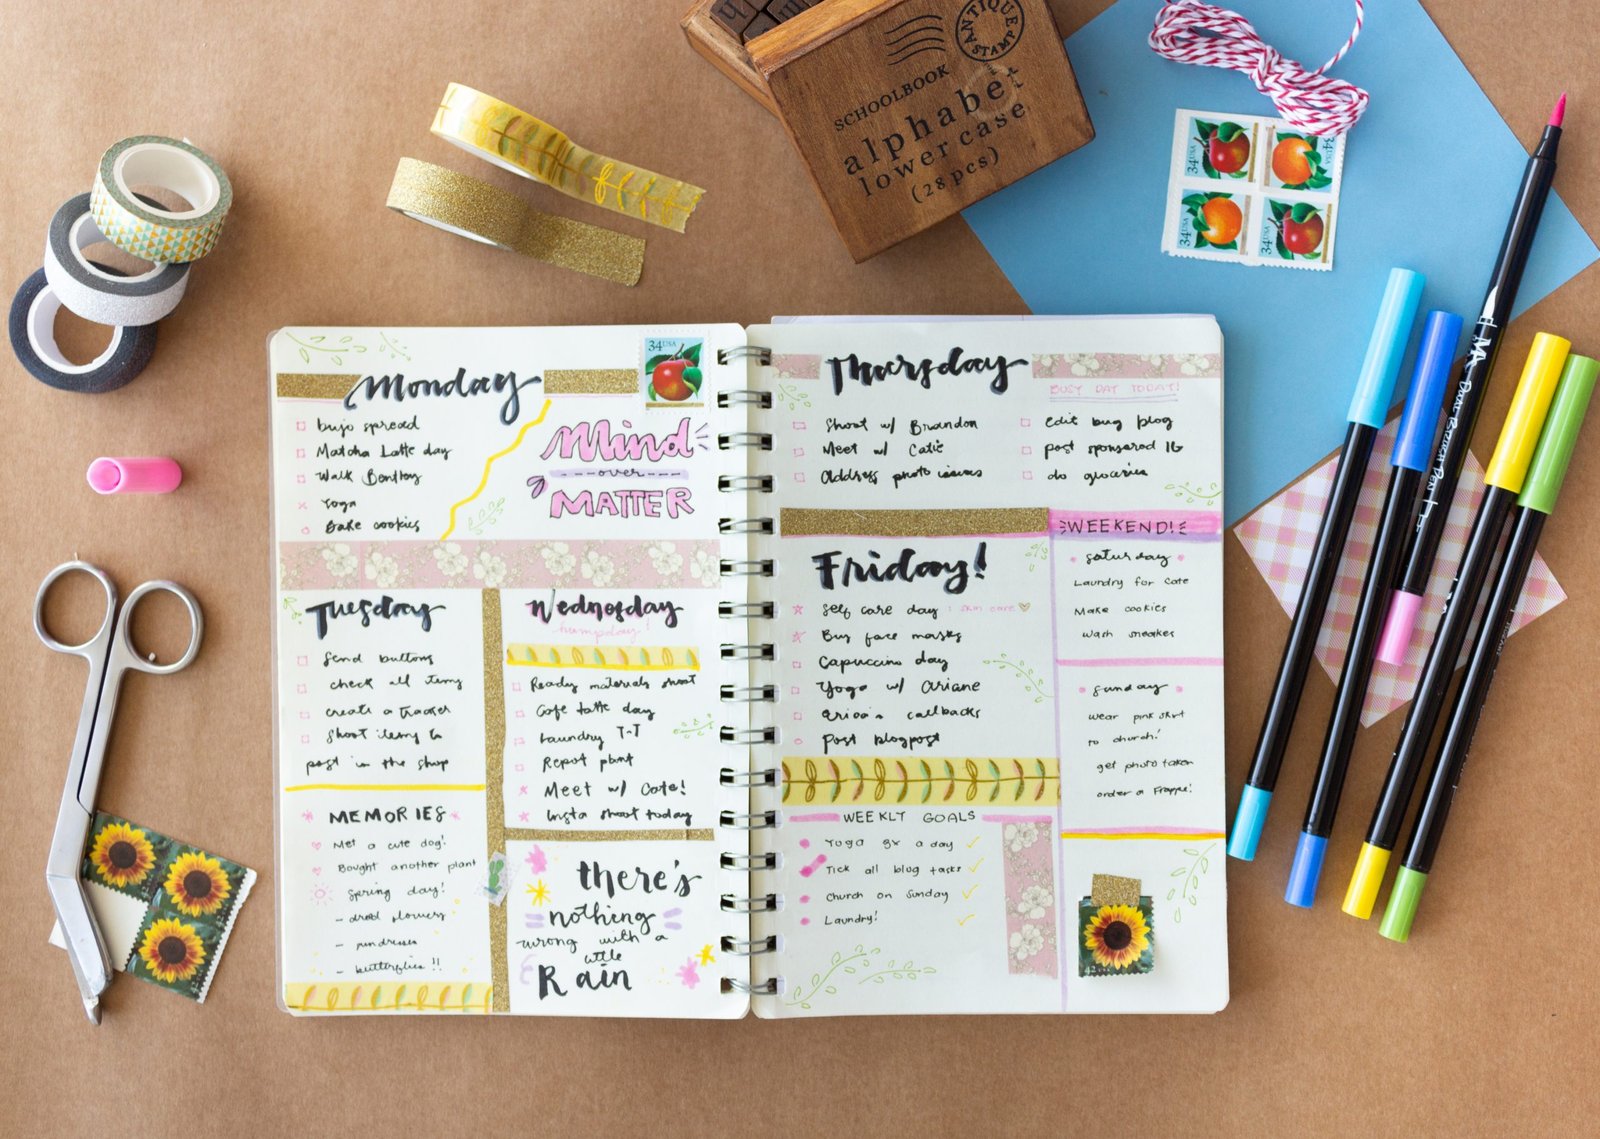 SCHOOLBOOK
alphabet
lower case
(28 pcs)
ANTIQUE
STAMP
34 USA
34 USA
34 USA
34 USA
Monday
bujo spread
Matcha Latte day
Walk Bentley
Yoga
Bake cookies
34 USA
Mind
over
MATTER
Tuesday
Send buttons
check all items
create a tracker
Shoot items to
post in the shop
Wednesday
humpday!
Ready materials shoot
Cafe latte day
Laundry T-T
Repot plant
Meet w/ Cate!
Insta shoot today
MEMORIES
Met a cute dog!
Bought another plant
Spring day!
- dried flowers
- sundresses
- butterflies!!
there's
nothing
wrong with a
little
Rain
Thursday
BUSY DAY TODAY!
Shoot w/ Brandon
Meet w/ Catie
Address photo issues
edit bug blog
post sponsored IG
do groceries
Friday!
Self care day: skin care
Buy face masks
Capuccino day
Yoga w/ Ariane
callbacks
Post blogpost
WEEKLY GOALS
Yoga 3x a day
Tick all blog tasks
Church on Sunday
Laundry!
WEEKEND!
Saturday
Laundry for Cate
Make cookies
wash sneakers
Sunday
wear pink skirt
to church!
get photo taken
order a Frappe!
DUAL BRUSH PEN